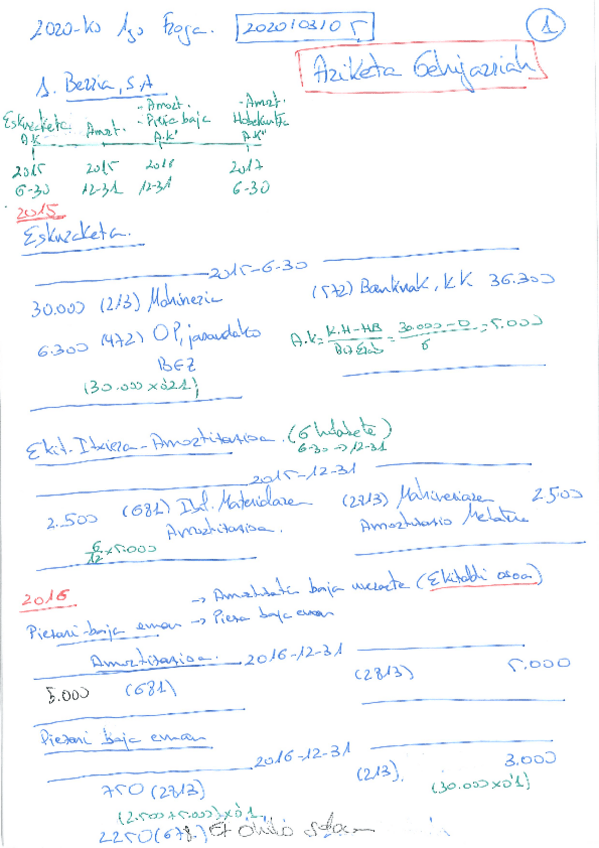 2020-ko Azo Froga. 20201031 0 5 1
Aziketa Gehigarriak
1. Berria, S.A
-Amort. -Amort.
Eskuraketa Amort. -Pieza baja Hobekuntza
A.K A.K' A.K''
2015 2015 2016 2017
6-30 12-31 12-31 6-30
2015
Eskuraketa.
2015-6-30
30.000 (213) Makineria (572) Bankuak, KK 36.300
6.300 (472) OP, jasandako BEZ
A.K = K.H-HB = 30.000-0 = 5.000
6
(30.000 x 0'21)
Ekit. Itxiera - Amortizazioa. (6 hilabete)
6-30 → 12-31
2015-12-31
2.500 (681) Ibil. Materialaren Amortizazioa. (2813) Makineriaren Amortizazio Metatua 2.500
6/12 x 5.000
2016
→ Amortizatu baja (Ekitaldi osoa)
Piezari baja eman → Pieza baja eman
Amortizazioa. 2016-12-31
5.000 (681) (2813) 5.000
Piezari baja eman
2016-12-31
750 (2813) (213). 3.000
(2.500+5.000) x 0'1 (30.000 x 0'1)
2250 (678.) Ez Ohiko